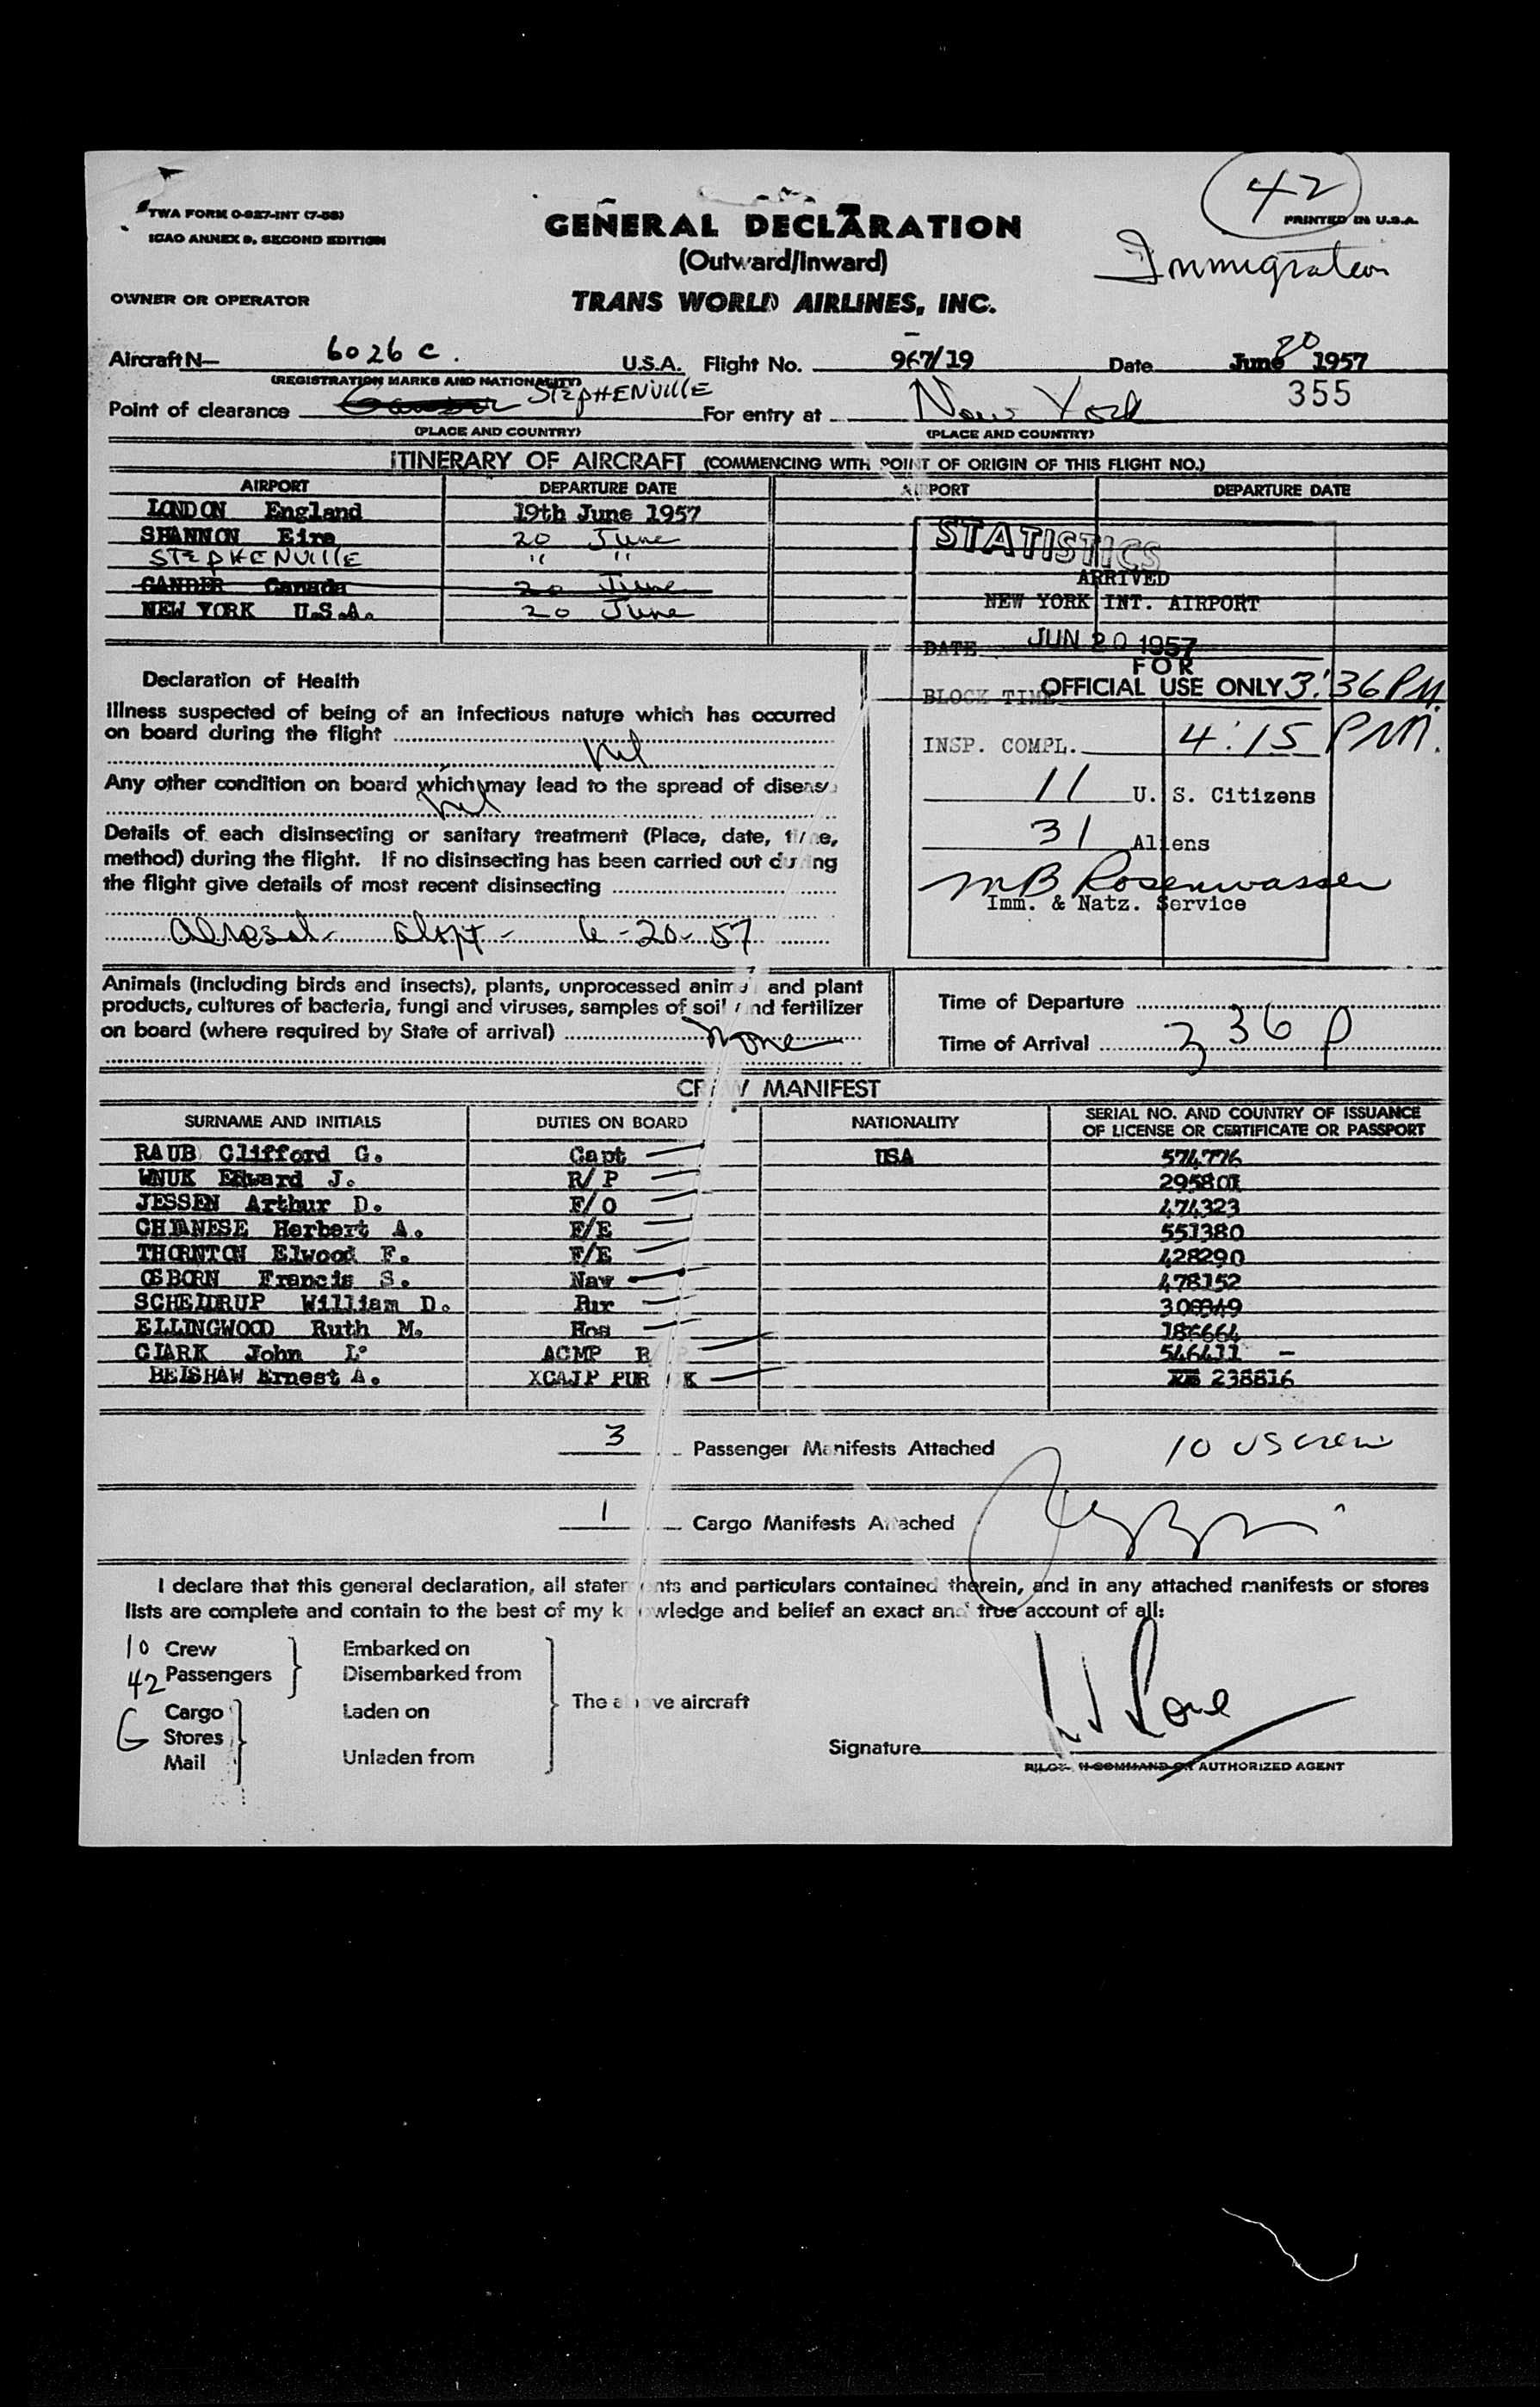 42
TWA FORM O-927-INT (7-55)
PRINTED IN U.S.A.
ICAO ANNEX 9, SECOND EDITION
GENERAL DECLARATION
(Outward/Inward)
Immigration
OWNER OR OPERATOR
TRANS WORLD AIRLINES, INC.
Aircraft N— 6026 C. U.S.A. Flight No. 967/19 Date June 20 1957
(REGISTRATION MARKS AND NATIONALITY)
355
Point of clearance Gander STEPHENVILLE For entry at New York
(PLACE AND COUNTRY) (PLACE AND COUNTRY)
ITINERARY OF AIRCRAFT (COMMENCING WITH POINT OF ORIGIN OF THIS FLIGHT NO.)
AIRPORT DEPARTURE DATE AIRPORT DEPARTURE DATE
LONDON England 19th June 1957
SHANNON Eire 20 June
STEPHENVILLE " "
GANDER Canada 20 June
NEW YORK U.S.A. 20 June
STATISTICS
ARRIVED
NEW YORK INT. AIRPORT
DATE JUN 20 1957
FOR
OFFICIAL USE ONLY
BLOCK TIME 3:36 PM.
INSP. COMPL. 4:15 PM.
11 U. S. Citizens
31 Aliens
MB Rosenwasser
Imm. & Natz. Service
Declaration of Health
Illness suspected of being of an infectious nature which has occurred
on board during the flight
Nil
Any other condition on board which may lead to the spread of disease
Nil
Details of each disinsecting or sanitary treatment (Place, date, time,
method) during the flight. If no disinsecting has been carried out during
the flight give details of most recent disinsecting
6-20-57
Animals (including birds and insects), plants, unprocessed animal and plant
products, cultures of bacteria, fungi and viruses, samples of soil and fertilizer
on board (where required by State of arrival) None
Time of Departure
Time of Arrival 3 36 p
CREW MANIFEST
SURNAME AND INITIALS DUTIES ON BOARD NATIONALITY SERIAL NO. AND COUNTRY OF ISSUANCE
OF LICENSE OR CERTIFICATE OR PASSPORT
RAUB Clifford G. Capt USA 574776
WNUK Edward J. R/P 295801
JESSEN Arthur D. F/O 474323
CHIANESE Herbert A. F/E 551380
THORNTON Elwood F. F/E 428290
OSBORN Francis S. Nav 478152
SCHELDRUP William D. Pur
ELLINGWOOD Ruth M. Hos 186664
CLARK John L. ACMP R/P 546411 -
BELSHAW Ernest A. XCAJP PUR CK 238816
3 Passenger Manifests Attached 10 US crew
1 Cargo Manifests Attached
I declare that this general declaration, all statements and particulars contained therein, and in any attached manifests or stores
lists are complete and contain to the best of my knowledge and belief an exact and true account of all:
10 Crew Embarked on
42 Passengers Disembarked from
Cargo Laden on The above aircraft
Stores
Mail Unladen from
Signature
PILOT IN COMMAND OR AUTHORIZED AGENT